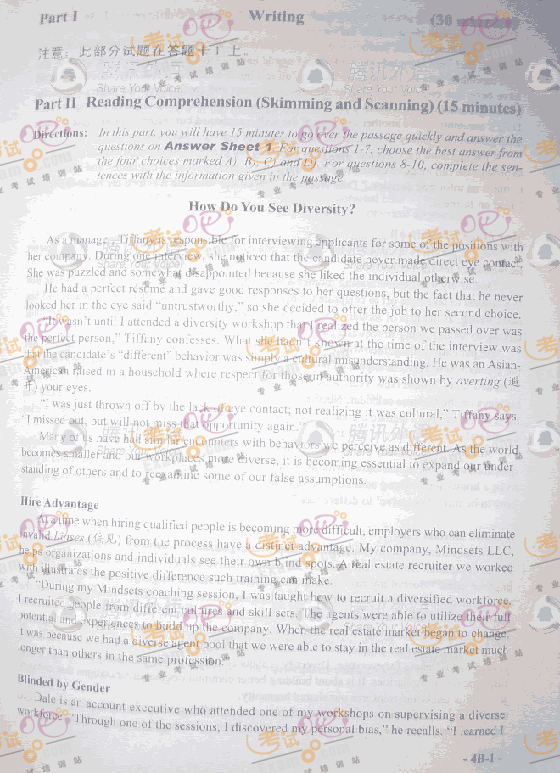 Part I Writing (30 minutes)
注意：此部分试题在答题卡1上。
Part II Reading Comprehension (Skimming and Scanning) (15 minutes)
Directions: In this part, you will have 15 minutes to go over the passage quickly and answer the
questions on Answer Sheet 1. For questions 1-7, choose the best answer from
the four choices marked A), B), C) and D). For questions 8-10, complete the sen-
tences with the information given in the passage.
How Do You See Diversity?
As a manager, Tiffany is responsible for interviewing applicants for some of the positions with
her company. During one interview, she noticed that the candidate never made direct eye contact.
She was puzzled and somewhat disappointed because she liked the individual otherwise.
He had a perfect résumé and gave good responses to her questions, but the fact that he never
looked her in the eye said "untrustworthy," so she decided to offer the job to her second choice.
"It wasn't until I attended a diversity workshop that I realized the person we passed over was
the perfect person," Tiffany confesses. What she hadn't known at the time of the interview was
that the candidate's "different" behavior was simply a cultural misunderstanding. He was an Asian-
American raised in a household where respect for those in authority was shown by averting (避
开) your eyes.
"I was just thrown off by the lack of eye contact; not realizing it was cultural," Tiffany says.
"I missed out, but will not miss that opportunity again."
Many of us have had similar encounters with behaviors we perceive as different. As the world
becomes smaller and our workplaces more diverse, it is becoming essential to expand our under-
standing of others and to reexamine some of our false assumptions.
Hire Advantage
At a time when hiring qualified people is becoming more difficult, employers who can eliminate
invalid biases (偏见) from the process have a distinct advantage. My company, Mindsets LLC,
helps organizations and individuals see their own blind spots. A real estate recruiter we worked
with illustrates the positive difference such training can make.
"During my Mindsets coaching session, I was taught how to recruit a diversified workforce.
I recruited people from different cultures and skill sets. The agents were able to utilize their full
potential and experiences to build up the company. When the real estate market began to change,
it was because we had a diverse agent pool that we were able to stay in the real estate market much
longer than others in the same profession."
Blinded by Gender
Dale is an account executive who attended one of my workshops on supervising a diverse
workforce. "Through one of the sessions, I discovered my personal bias," he recalls. "I learned I
- 4B-1 -